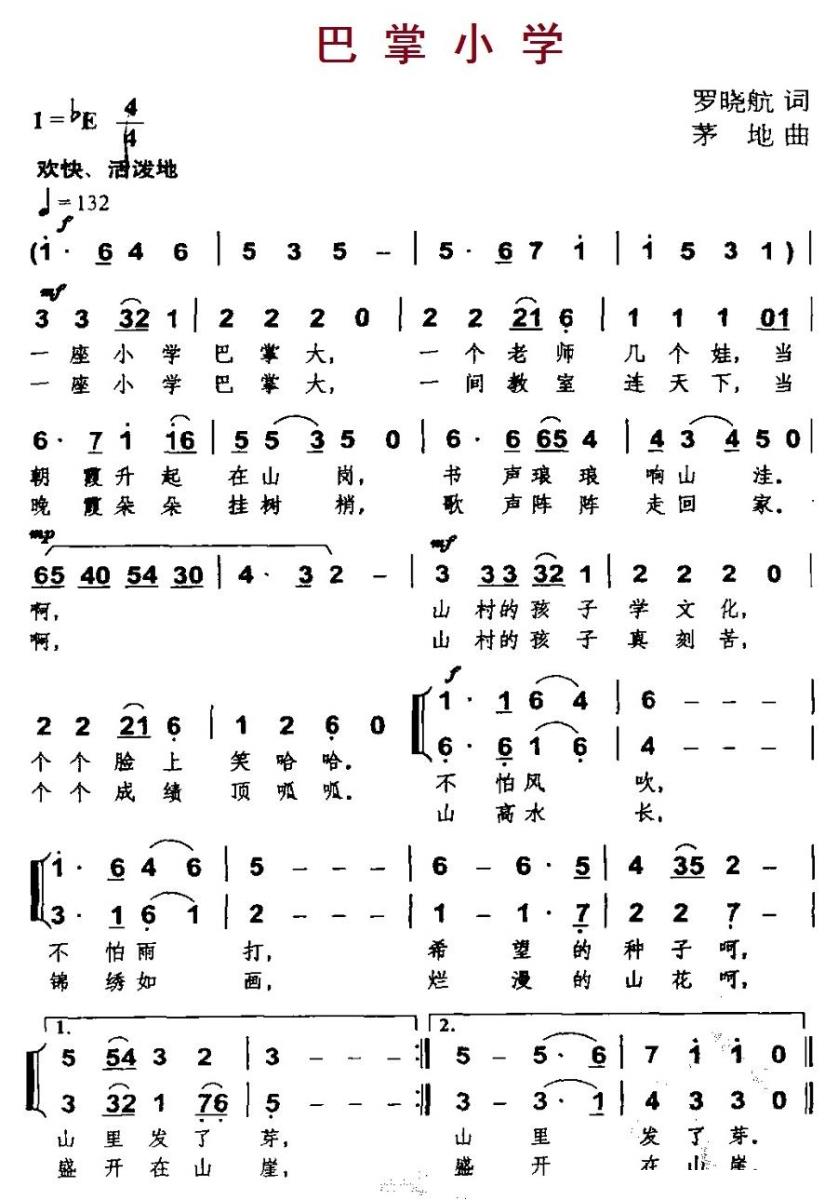 巴掌小学
1=♭E 4/4
罗晓航 词
茅 地 曲
欢快、活泼地
♩=132
f
(i· 6 4 6 | 5 3 5 – | 5· 6 7 i | i 5 3 1) |
mf
3 3 32 1 | 2 2 2 0 | 2 2 21 6 | 1 1 1 01 |
一座小学巴掌大, 一个老师几个娃, 当
一座小学巴掌大, 一间教室连天下, 当
6· 7 i i6 | 5 5 3 5 0 | 6· 6 65 4 | 4 3 4 5 0 |
朝霞升起在山岗, 书声琅琅响山洼。
晚霞朵朵挂树梢, 歌声阵阵走回家。
mp mf
65 40 54 30 | 4· 3 2 – | 3 33 32 1 | 2 2 2 0 |
啊, 山村的孩子学文化,
啊, 山村的孩子真刻苦,
f
2 2 21 6 | 1 2 6 0 | i· i 6 4 | 6 – – – |
6· 6 1 6 | 4 – – – |
个个脸上笑哈哈。 不怕风吹,
个个成绩顶呱呱。 山高水长,
i· 6 4 6 | 5 – – – | 6 – 6· 5 | 4 35 2 – |
3· 1 6 1 | 2 – – – | 1 – 1· 7 | 2 2 7 – |
不怕雨打, 希望的种子呵,
锦绣如画, 烂漫的山花呵,
1. 2.
5 54 3 2 | 3 – – – :‖ 5 – 5· 6 | 7 i i 0 ‖
3 32 1 76 | 5 – – – :‖ 3 – 3· 1 | 4 3 3 0 ‖
山里发了芽, 山里发了芽。
盛开在山崖, 盛开在山崖.